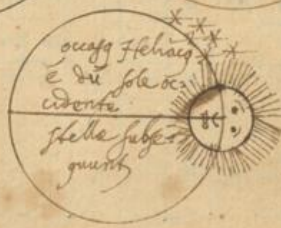 occasq Heliac9
ē dū sole oc:
cidente
stellæ subse
quunt